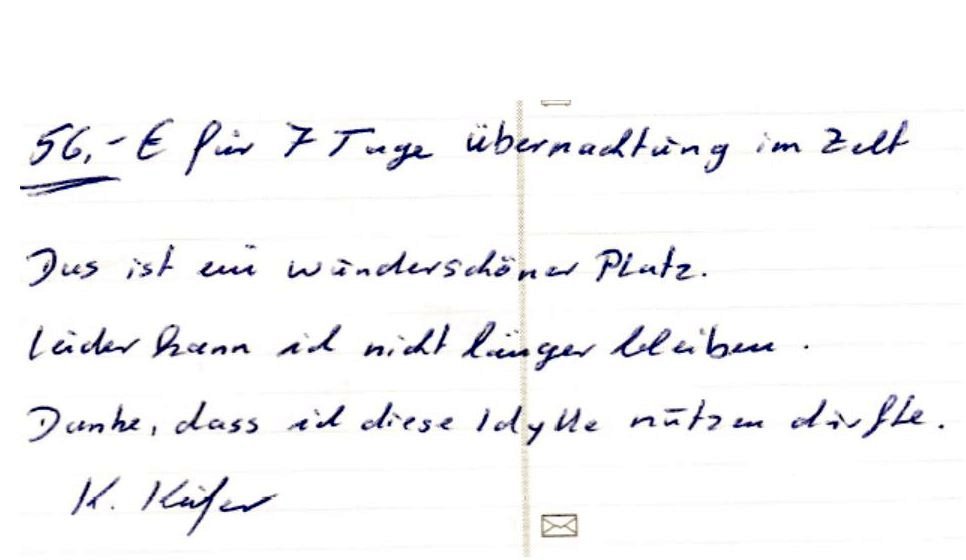 56,- € für 7 Tage Übernachtung im Zelt
Das ist ein wunderschöner Platz.
Leider kann ich nicht länger bleiben.
Danke, dass ich diese Idylle nutzen dürfte.
K.